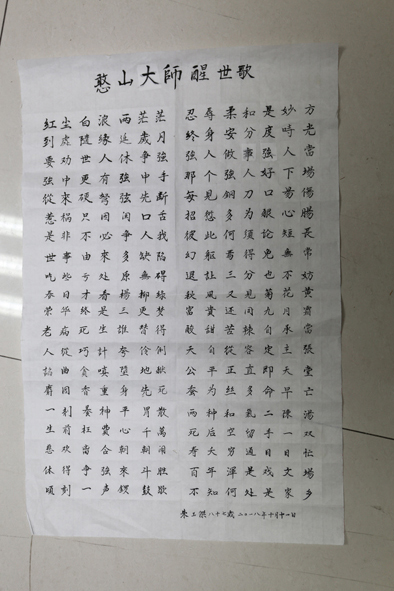 憨山大師醒世歌
紅尘白浪兩茫茫忍辱柔和是妙方
到處隨緣延歲月終身安分度時老
要劝世人休爭強強人做事強人當
強中更有強中手那个強人好下場
從來硬弩弦先断每見鋼刀口易傷
惹禍只因闲口舌招愆多為狠心腸
是非不必爭人我彼此何須論短長
世事由來多缺陷幻躯焉得免無常
吃些亏處原無碍退讓三分也不妨
春日才看楊柳綠秋風又見菊花黄
榮華終是三更梦富貴还同九月霜
老病死生誰替得酸甜苦辣自承當
人從巧計夸伶俐天自從容定主張
諂曲貪嗔堕地獄公平正直即天堂
麝因香重身先死蚕為丝多命早亡
一剂養神平胃散兩神和氣二陳湯
生前枉費心千萬死后空留手一双
悲欢離合朝朝闹寿夭穷通日日忙
休得争強來鬥勝百年渾是戏文場
頃刻一声鑼鼓歇不知何處是家鄉
八十七歲 二〇一八年十月十一日